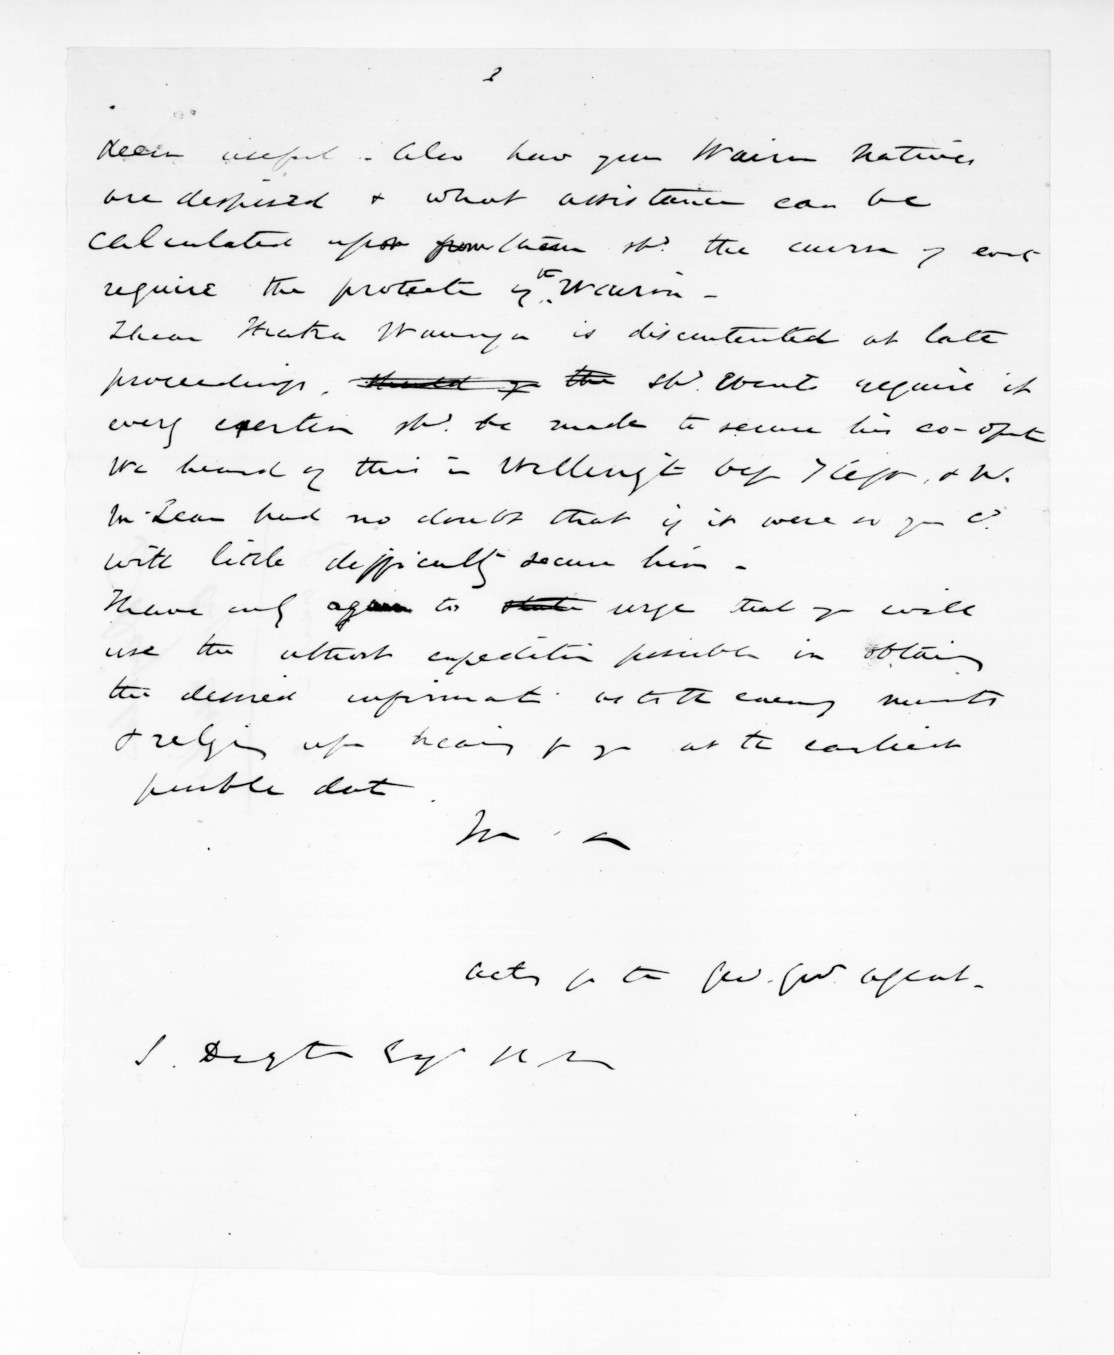 2
deem useful - Also how your Wairoa Natives
are disposed & what assistance can be
calculated upon from them shd. the course of evts
require the protectn of the Wairoa -
I hear Ihaka Whaanga is discontented at late
proceedings, should y the shd. Events require it
every exertion shd. be made to secure his co-opt
We heard of this in Wellingtn bef I left, & Mr.
McLean had no doubt that if it were so you cd.
with little difficulty secure him -
I have only again to state urge that yr will
use the utmost expedition possible in obtaing
the desired informat as to the enemy
& relying upon hearing fr yr at the earliest
possible date.
acts for the Genl. Govt. Agent.
S. Deighton Esq R M